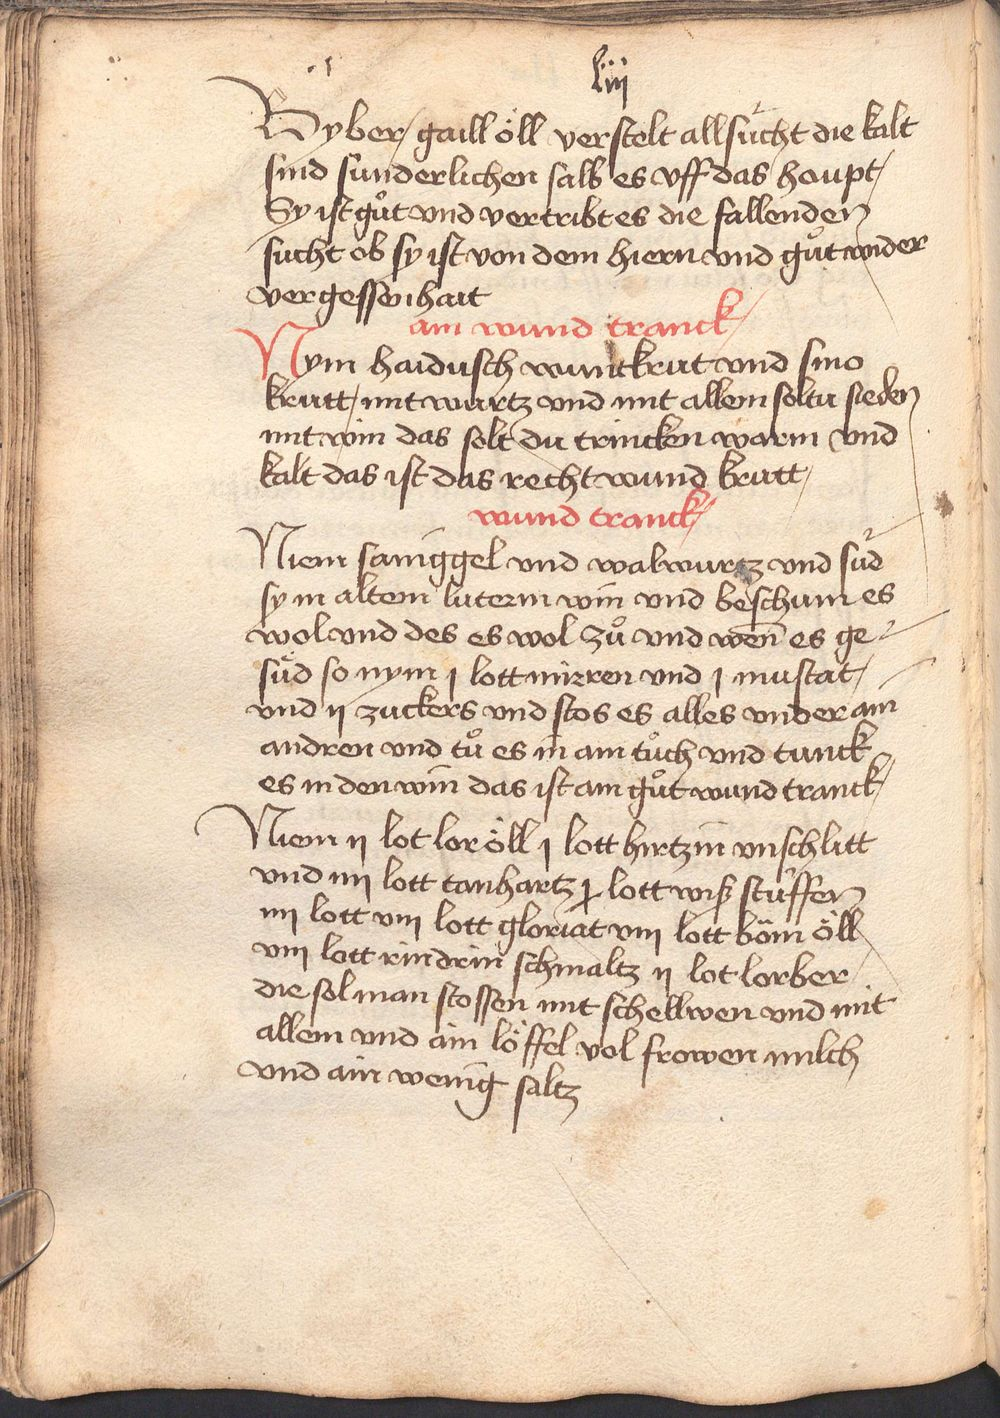 liij
Byber / gaill öll verstelt all sücht die kalt
sind sunderlichen salb es vff das houpt /
Sy ist gůt vnd vertribt es die fallenden
sucht ob sy ist von dem hiern vnd gůt wider
vergessenhait
ain wund tranck /
Nym haidnsch wuntkrut vnd sino
krutt / mit wurtz vnd mit allem soltu sieden
mit win das solt du trincken warm vnd
kalt das ist das recht wund krutt /
wund tranck /
Niem saniggel vnd walwurtz vnd süd
sy in altem luterm win vnd beschum es
wol vnd des es wol zů vnd wen̄ es ge
süd so nym j lott mirren vnd j muscat /
vnd ij zuckers vnd stos es alles vnder ain
andren vnd tů es in ain tůch vnd tunck
es in den win das ist ain gůt wund tranck /
Niem ij lot lor öll j lott hirtzin vnschlitt
vnd iiij lott tanhartz j lott wiß stüffen
iiij lott viij lott gloriat viij lott böm öll
viij lott rindrin schmaltz ij lot lorber
die sol man stossen mit schellwen vnd mit
allem vnd ain löffel vol frowen milch
vnd ain wenig saltz